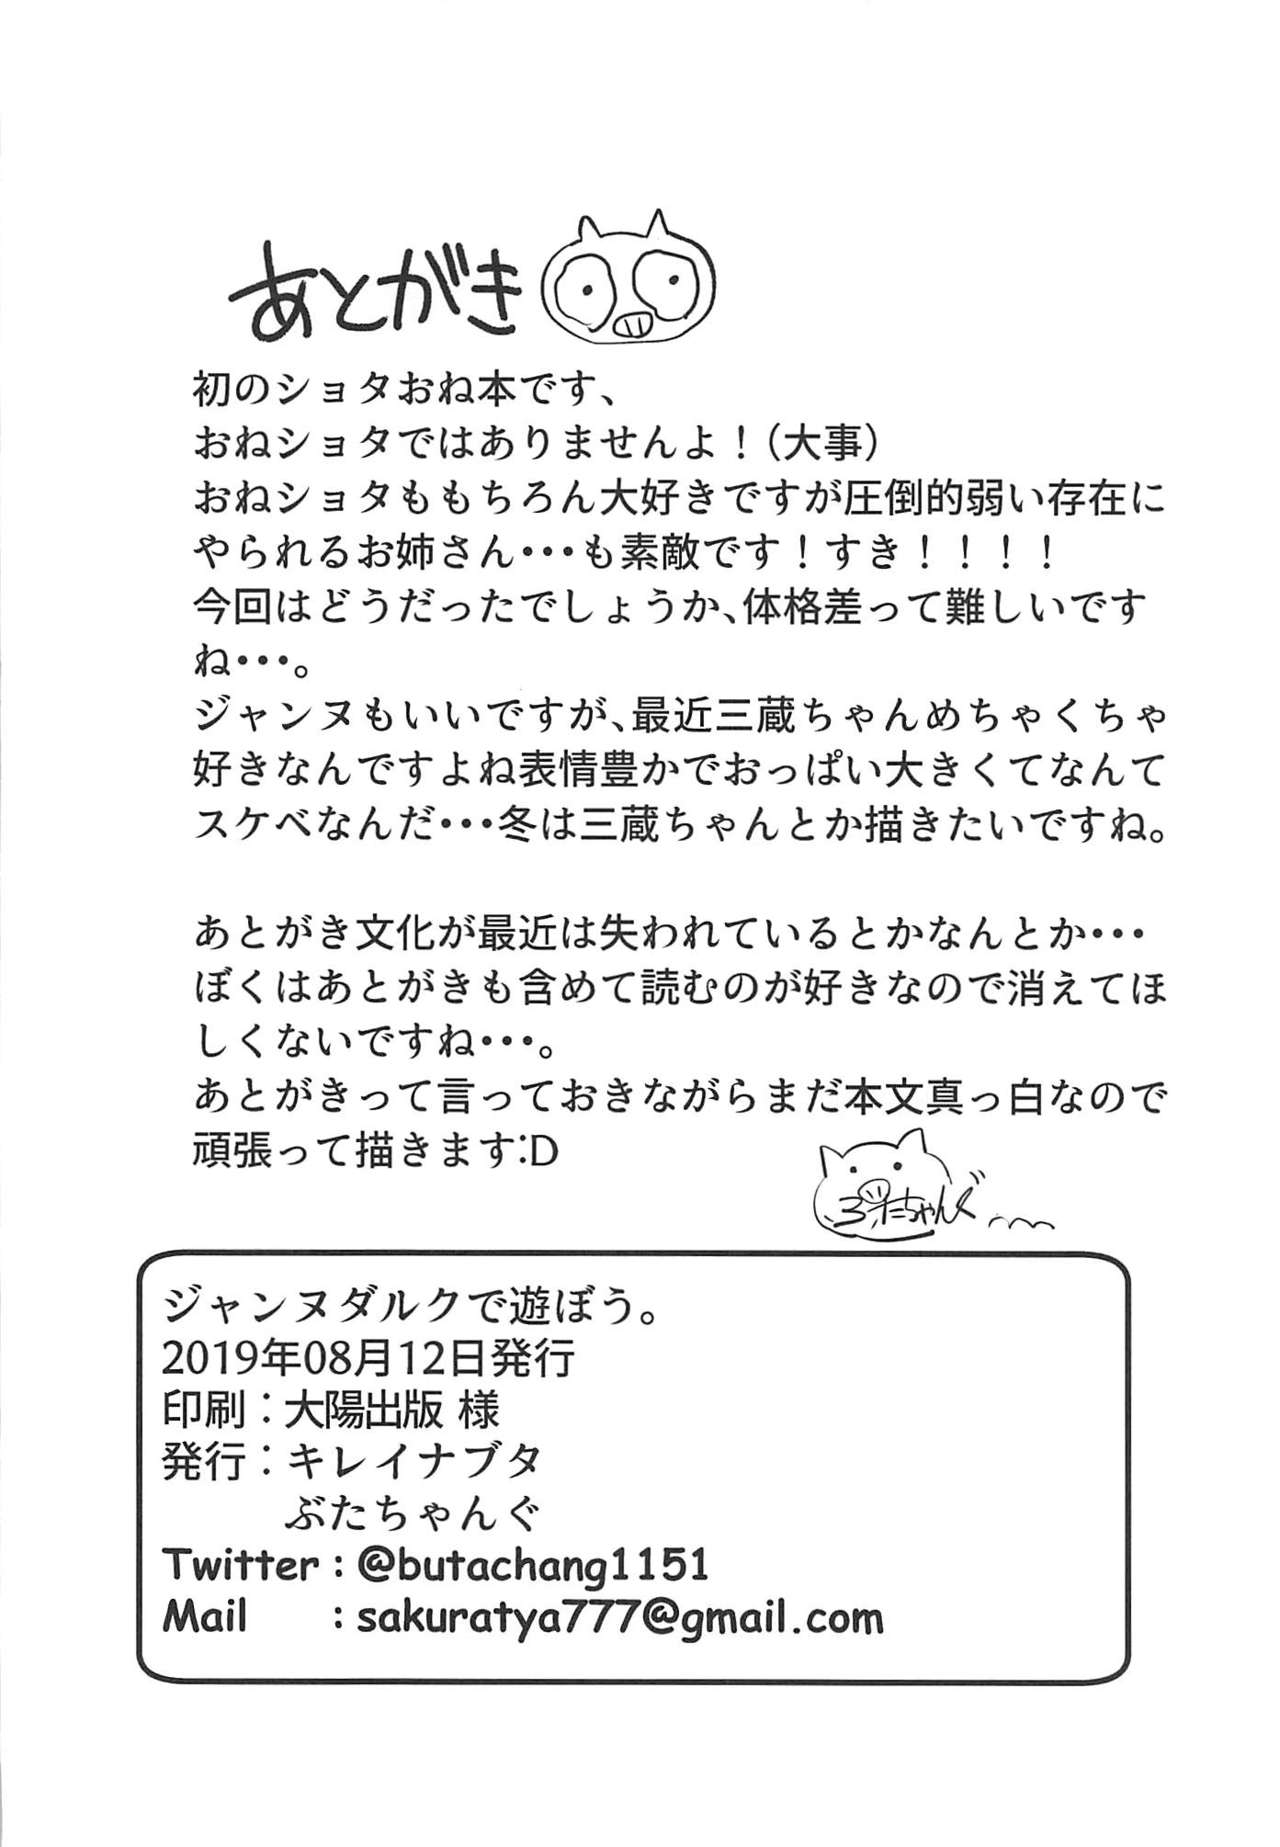 あとがき
初のショタおね本です、
おねショタではありませんよ！（大事）
おねショタももちろん大好きですが圧倒的弱い存在に
やられるお姉さん・・・も素敵です！すき！！！！
今回はどうだったでしょうか、体格差って難しいです
ね・・・。
ジャンヌもいいですが、最近三蔵ちゃんめちゃくちゃ
好きなんですよね表情豊かでおっぱい大きくてなんて
スケベなんだ・・・冬は三蔵ちゃんとか描きたいですね。
あとがき文化が最近は失われているとかなんとか・・・
ぼくはあとがきも含めて読むのが好きなので消えてほ
しくないですね・・・。
あとがきって言っておきながらまだ本文真っ白なので
頑張って描きます:D
ぶたちゃんぐ
ジャンヌダルクで遊ぼう。
2019年08月12日発行
印刷：大陽出版 様
発行：キレイナブタ
ぶたちゃんぐ
Twitter : @butachang1151
Mail : sakuratya777@gmail.com